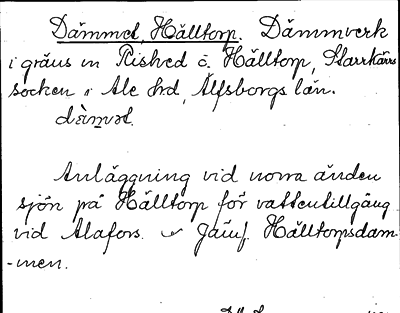 Dämmet, Hälltorp. Dämmverk
i gräns m Rished o. Hälltorp, Starrkärrs
socken i Ale hd, Älfsborgs län.
dàmət.
Anläggning vid norra änden
sjön på Hälltorp för vattentillgång
vid Alafors. Jämf. Hälltorpsdam-
-men.